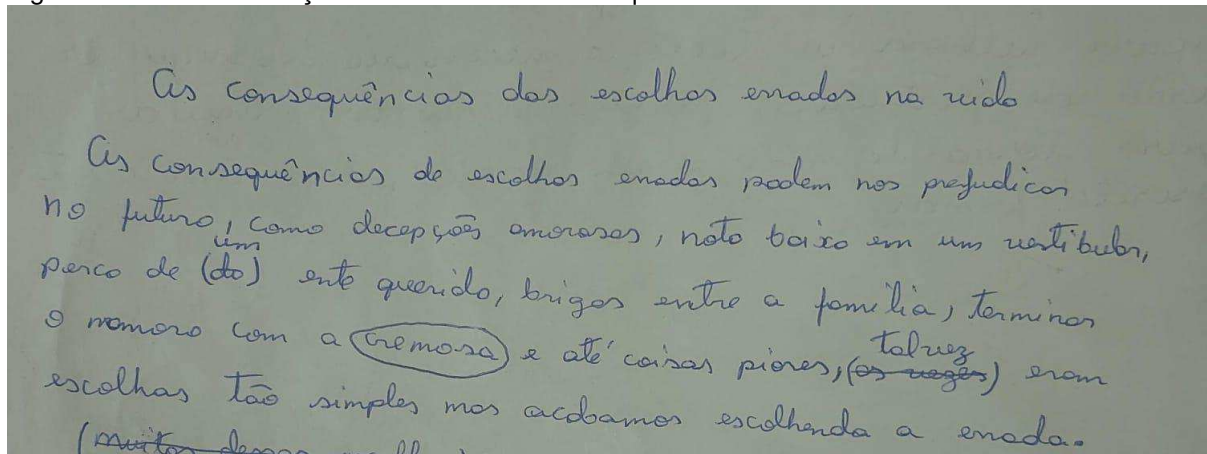 As consequências das escolhas erradas na vida
As consequências de escolhas erradas podem nos prejudicar
no futuro, como decepções amorosas, nota baixa em um vestibular,
um
perca de (do) ente querido, brigas entre a família, terminar
o namoro com a cremosa e até coisas piores, (as vezes) talvez eram
escolhas tão simples mas acabamos escolhendo a errada.
(muitas dessas